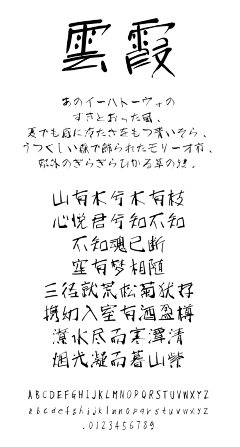 雲霞
あのイーハトーヴォの
すきとおった風、
夏でも底に冷たさをもつ青いそら、
うつくしい森で飾られたモリーオ市、
郊外のぎらぎらひかる草の波。
山有木兮木有枝
心悦君兮知不知
不知魂已断
空有梦相随
三径就荒松菊犹存
携幼入室有酒盈樽
潦水尽而寒潭清
烟光凝而暮山紫
ABCDEFGHIJKLMNOPQRSTUVWXYZ
abcdefghijklmnopqrstuvwxyz
.0123456789